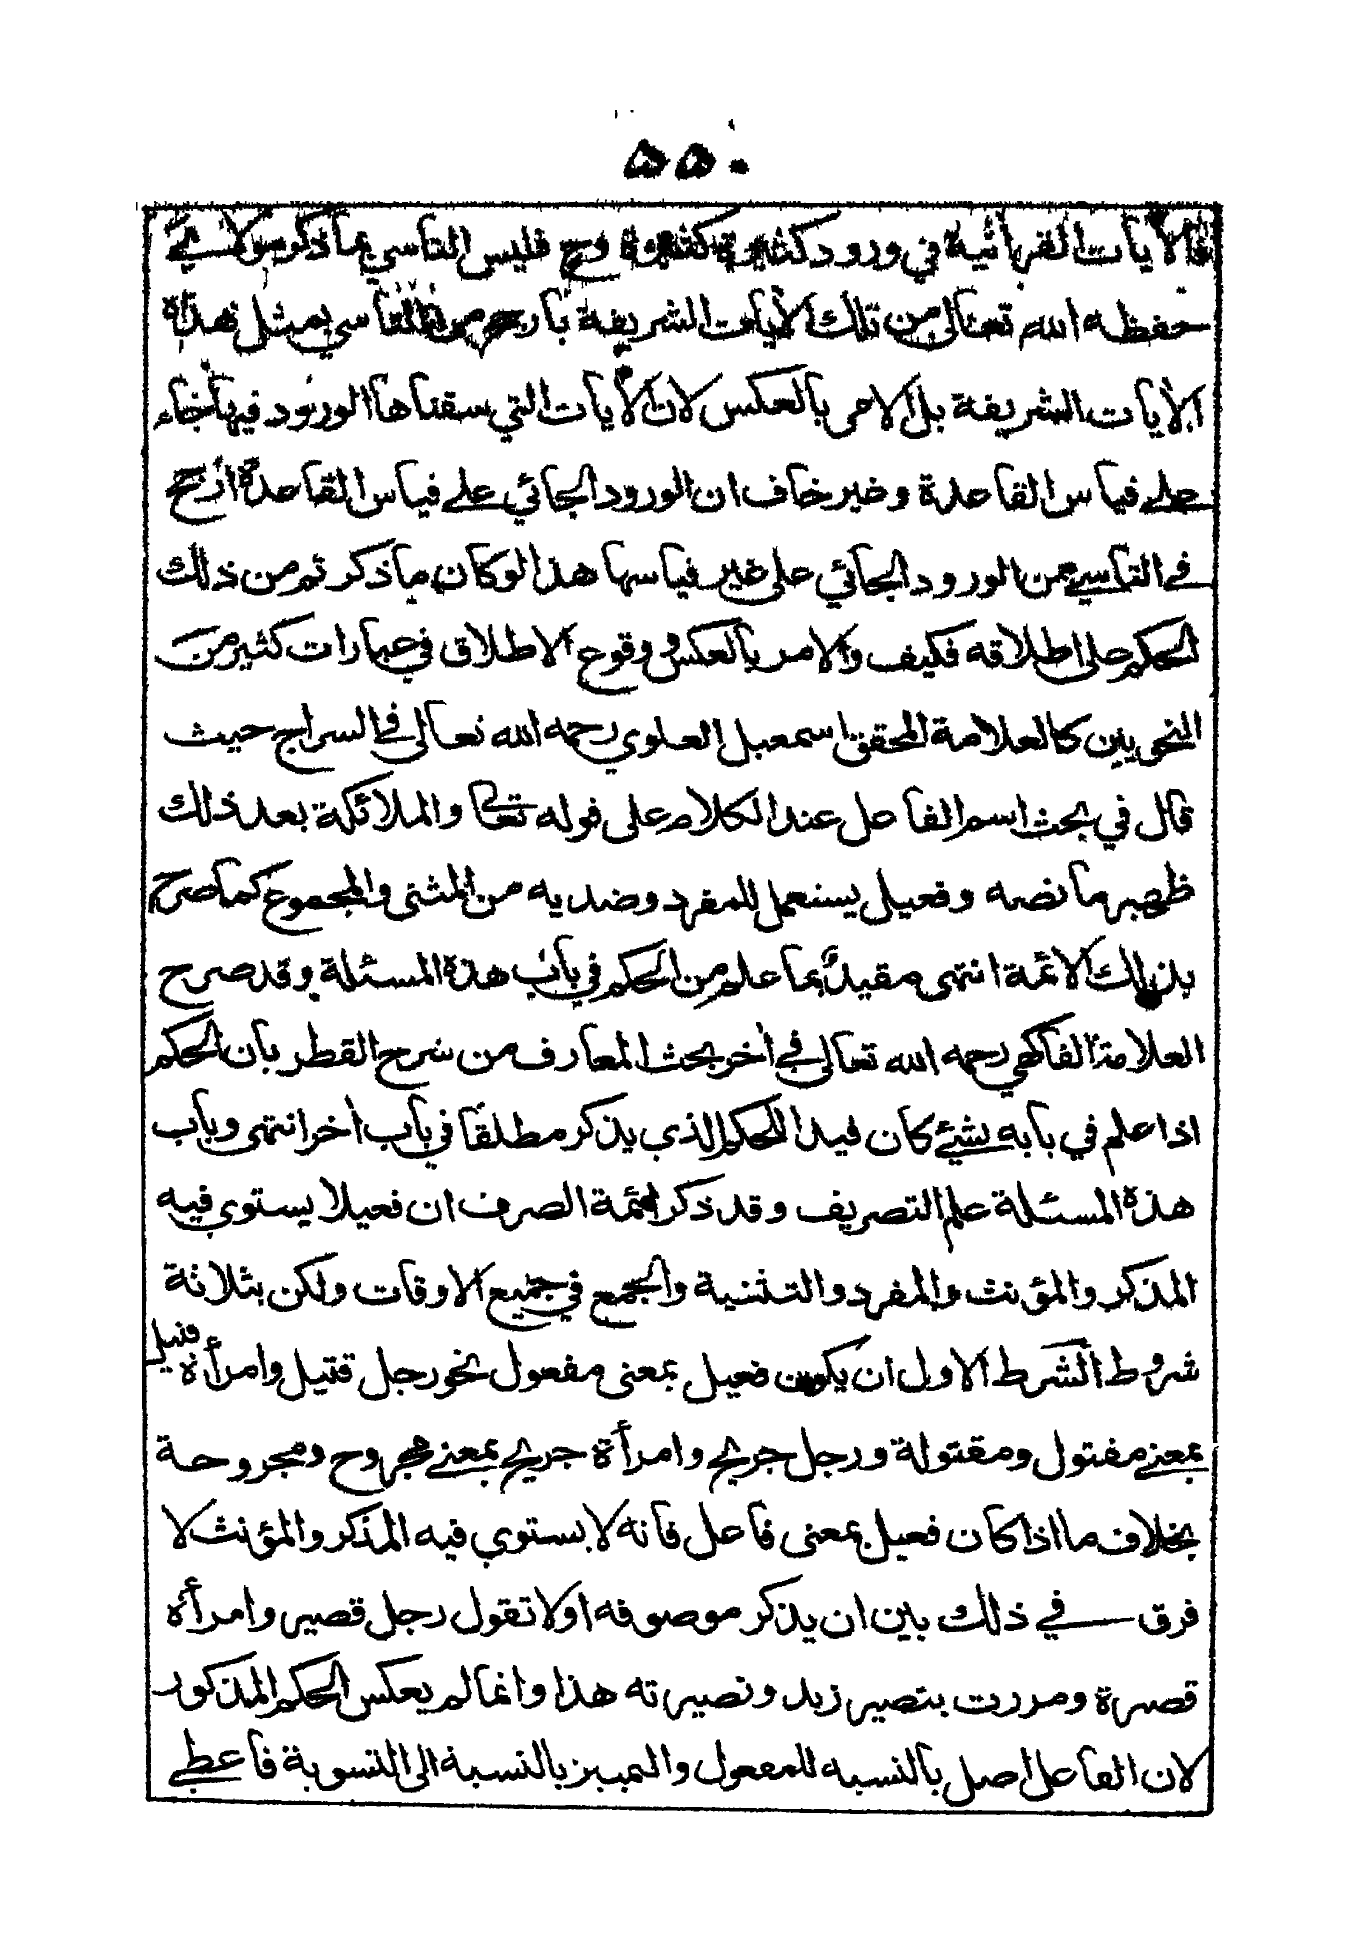 ٥٥٠
فالآيات القرآنية في ورود كثيرة وح فليس التاسي بما ذكر مولانا
حفظه الله تعالى من تلك الآيات الشريفة بأرجح من التاسي بمثل هذه
الآيات الشريفة بل الامر بالعكس لان الآيات التي سقناها الورود فيها جاء
على قياس القاعدة وغير خاف ان الورود الجائي على قياس القاعدة ارجح
في التاسي من الورود الجائي على غير قياسها هذا لو كان ما ذكر تم من ذلك
الحكم على اطلاقه فكيف والامر بالعكس ووقوع الاطلاق في عبارات كثير من
النحويين كالعلامة المحقق اسمعيل العلوي رحمه الله تعالى في السراج حيث
قال في بحث اسم الفاعل عند الكلام على قوله تعالى والملائكة بعد ذلك
ظهير ما نصه وفعيل يستعمل للمفرد وضديه من المثنى والمجموع كما صرح
بذلك الائمة انتهى مقيد بما علم من الحكم في باب هذه المسئلة وقد صرح
العلامة الفاكهي رحمه الله تعالى في أخر بحث المعارف من شرح القطر بأن الحكم
اذا علم في بابه بشيئ كان قيدا للحكم الذي يذكر مطلقا في باب أخر انتهى وباب
هذه المسئلة علم التصريف وقد ذكر ائمة الصرف ان فعيلا يستوي فيه
المذكر والمؤنث والمفرد والتثنية والجمع في جميع الاوقات ولكن بثلاثة
شروط الشرط الاول ان يكون فعيل بمعنى مفعول نحو رجل قتيل وامرأة قتيل
بمعنى مقتول ومقتولة ورجل جريح وامرأة جريح بمعنى مجروح ومجروحة
بخلاف ما اذا كان فعيل بمعنى فاعل فانه لا يستوي فيه المذكر والمؤنث لا
فرق في ذلك بين ان يذكر موصوفه اولا تقول رجل قصير وامرأة
قصيرة ومررت بنصير زيد ونصيرته هذا وانما لم يعكس الحكم المذكور
لان الفاعل اصل بالنسبه للمفعول والتمييز بالنسبة الى التسوية فأعطي